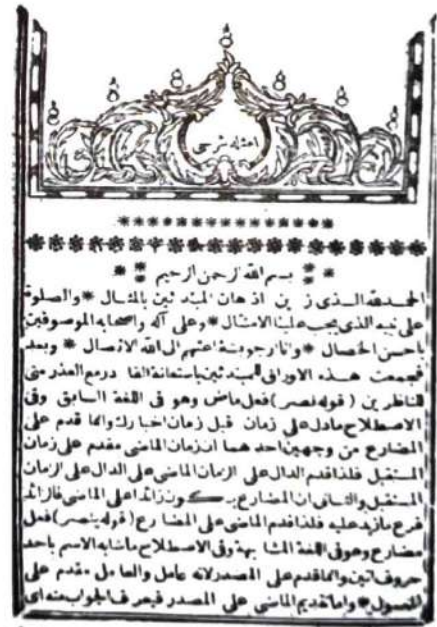 امثله شرحى
بسم الله الرحمن الرحيم
الحمد لله الذى زين اذهان المبتدئين بالمثال * والصلوة
على نبيه الذى يجب علينا الامتثال * وعلى آله واصحابه الموصوفين
باحسن الخصال * وانا ارجو بشفاعتهم الى الله الاتصال * وبعد
فجمعت هذه الاوراق للمبتدئين باستعانة القادر مع العذر من
الناظرين (قوله نصر) فعل ماض وهو فى اللغة السابق وفى
الاصطلاح مادل على زمان قبل زمان اخبارك وانما قدم على
المضارع من وجهين احدهما ان زمان الماضى مقدم على زمان
المستقبل فلذا قدم الدال على الزمان الماضى على الدال على الزمان
المستقبل والثانى ان المضارع يكون زائدا على الماضى فالزائد
فرع مازيد عليه فلذا قدم الماضى على المضارع (قوله ينصر) فعل
مضارع وهو فى اللغة المشابهة وفى الاصطلاح ماشابه الاسم باحد
حروف اتين وانما قدم على المصدر لانه عامل والعامل مقدم على
المعمول * واما تقديم الماضى على المصدر فيعرف الجواب منه اى